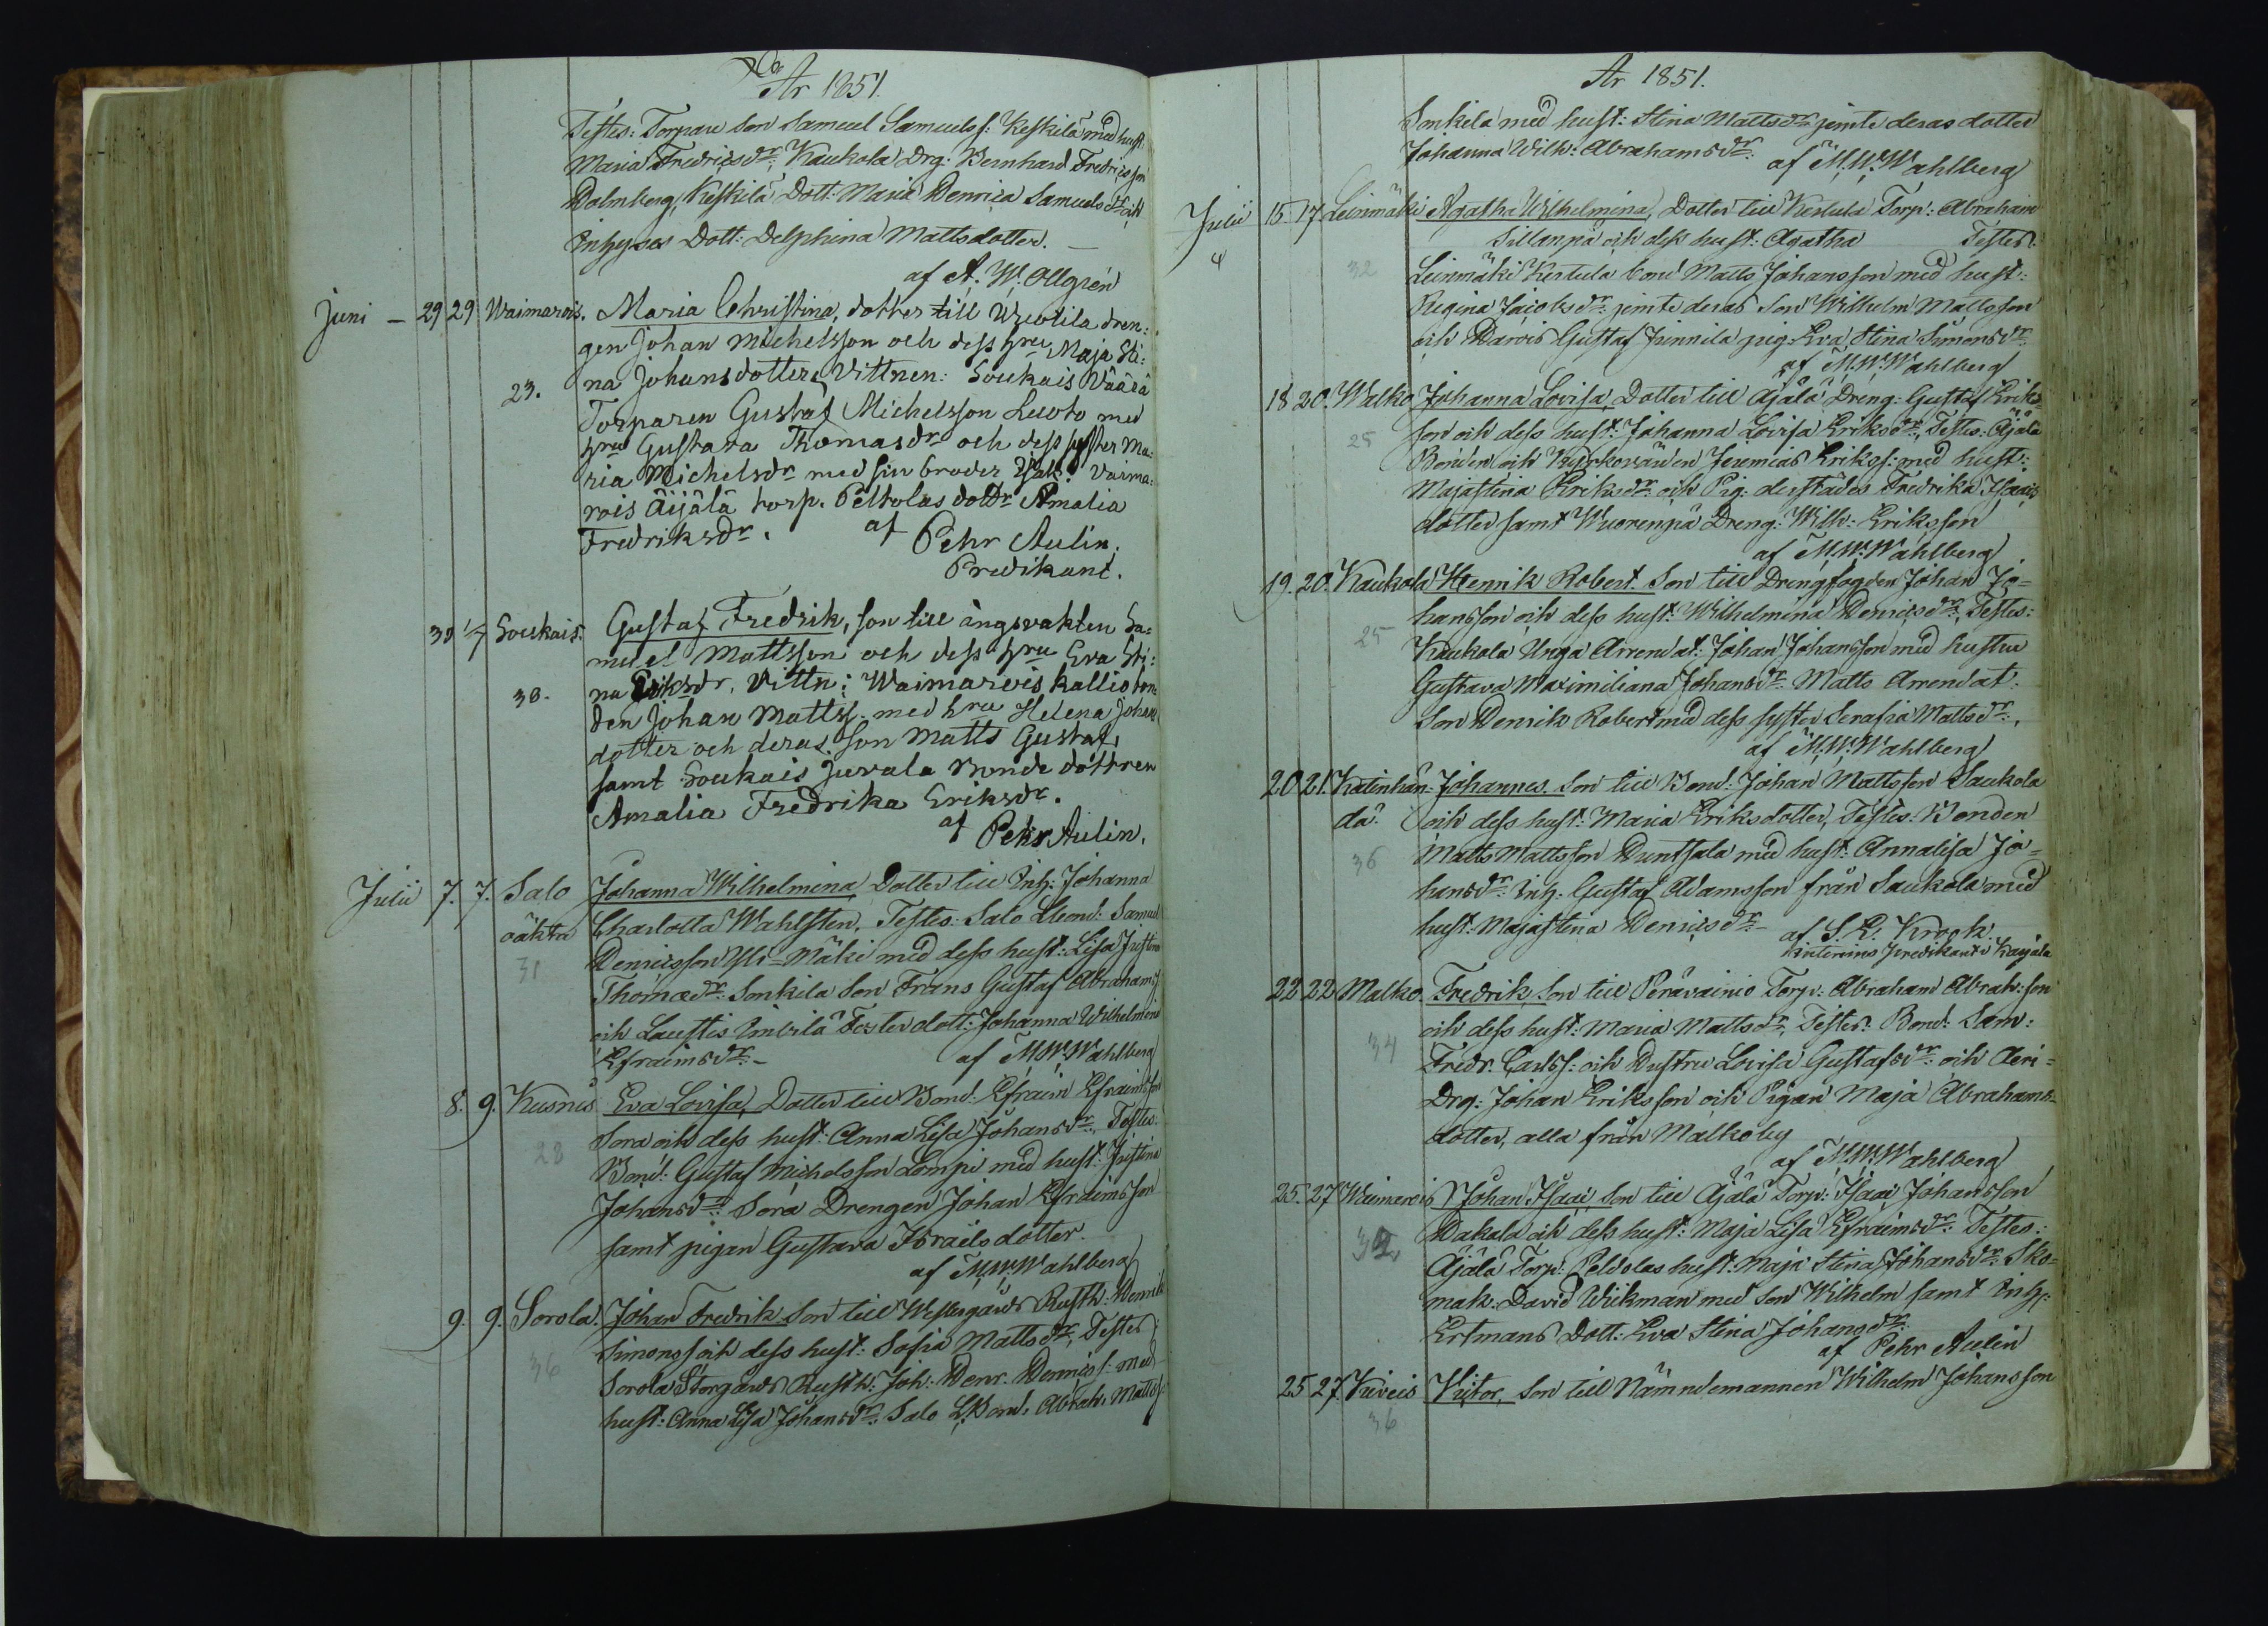 År 1851.
Testes: Torpare son Samuel Samuelss: Keskilä med hust:
Maria Fredricsdr: Kaukola Drg: Bernhard Fredricsson
Holmberg, Keskilä Dott: Maria Henrica Samuelsdr och
Inhyses Dott: Delphina Mattsdotter. —
af A. W. Ollgrén
Juni — 29 29 Waimarois. Maria Christina, dotter till Uzwtila dren:
gen Johan Michelsson och dess hru Maja Sti:
na Johansdotter, Vittnen: Soukais Väärä
23.
Torparen Gustaf Michelsson Luoto med
hru Gustava Thomasdr och dess syster Ma:
ria Michelsdr med sin broder Isak. Vaima:
rois Äijälä torp. Peltolas dottr Amalia
Fredriksdr. af Pehr Aulin,
Predikant.
30 1/7 Soukais. Gustaf Fredrik, son till ängsvakten Sa:
muel Mattsson och dess hru Eva Sti:
30.
na Eriksdr, Vittn: Waimarois Kallio bon:
den Johan Mattss. med hru Helena Johans
dotter och deras son Matts Gustaf,
samt Soukais Juvala Bonde dottren
Amalia Fredrika Eriksdr.
af Pehr Aulin.
Julii 7. 7. Salo Johanna Wilhelmina, Dotter till Inh: Johanna
oäkta Charlotta Wahlsten, Testes: Salo Lbond: Samuel
31
Henricsson Yli-Mäki med dess hust: Lisa Justina
Thomædr: Sonkila Son Frans Gustaf Abrahamss
och Laustis Imbilä Testes dott: Johanna Wilhelmina
Efraimsdr: — af M. W. Wahlberg
8. 9. Kusnis Eva Lovisa, Dotter till Bond: Efraim Efraimsson
28
Sora och dess hust: Anna Lisa Johansdr, Testes:
Bond: Gustaf Michelsson Lompi med hust: Justina
Johansdr: Sora Drengen Johan Efraimsson
samt pigan Gustava Israelsdotter.
af M. W. Wahlberg
9. 9. Sorola. Johan Fredrik Son till Westergårds Rusth: Henrik
36
Simonss och dess hust: Sofia Mattsdr, Testes:
Sorola Storgårds Rusth: Joh: Henr: Henricss: med
hust: Anna Lisa Johansdr: Salo Lbond: Abrah: Mattss:
År 1851.
Sonkila med hust: Stina Mattsdr jemte deras dotter
Johanna Wilh: Abrahamsdr:
af M. W. Wahlberg
Julii 15. 17. Leinmäki Agatha Wilhelmina, Dotter till Kertula Torp: Abraham
Sillanpä och dess hust: Agatha Testes.
32
Leinmäki Kertula bond Matts Johansson med hust:
Regina Jacobsdr: jemte deras Son Wilhelm Mattsson
och Marois Gustaf Junnila pig: Eva Stina Simonsdr
af M. W. Wahlberg
18 20. Walko Johanna Lovisa, Dotter till Äjälä Dreng: Gustaf Eriks-
25
son och dess hust: Johanna Lovisa Eriksdr, Testes: Äjälä
Bonden och Kyrkovärden Jeremias Erikss: med hust:
Majastina Eriksdr: och Pig: derstädes Fredrika Isaacs
dotter samt Wuorenpä Dreng: Wilh: Eriksson
af M. W. Wahlberg
19. 20. Kaukola Henrik Robert. Son till Drengfogden Johan Jo-
hansson och dess hust: Wilhelmina Henricsdr, Testes:
25
Kaukola Unga Arrendat: Johan Johansson med hustru
Gustava Maximiliana Johansdr: Matts Arrendat:
Son Henrik Robert med dess syster Serafia Mattsdr:,
af M. W. Wahlberg
20 21. Katinhän- Johannes. Son till Bond: Johan Mattsson Saukola
dä. och dess hust: Maria Eriksdotter, Testes: Bonden
36
Matts Mattsson Huntsala med hust: Annalisa Jo-
hansdr: Inh: Gustaf Adamsson från Saukola med
hust: Majastina Henricsdr:— af S. E. Krook
interims predikant i Karjala
22 22 Malko. Fredrik, Son till Peräväinio Torp: Abraham Abrah:son
34
och dess hust: Maria Mattsdr, Testes. Bond: Sam:
Fredr: Carlss: och Hustru Lovisa Gustafsdr: och Aeri-
Drg: Johan Eriksson och Pigan Maja Abrahams-
dotter, alla från Malko by
af M. W. Wahlberg
25. 27 Waimarois Johan Isaac, Son till Äjälä Torp: Isaac Johansson
32
Hakala och dess hust: Maja Lisa Efraimsdr: Testes:
Äjälä Torp: Peldolas hust: Maja Stina Johansdr: Sko-
mak: David Wickman med Son Wilhelm samt Inh:
Ertmans Dott: Eva Stina Johansdr:
af Pehr Aulin
25 27. Kiveis Victor, Son till Nämndemannen Wilhelm Johansson
36